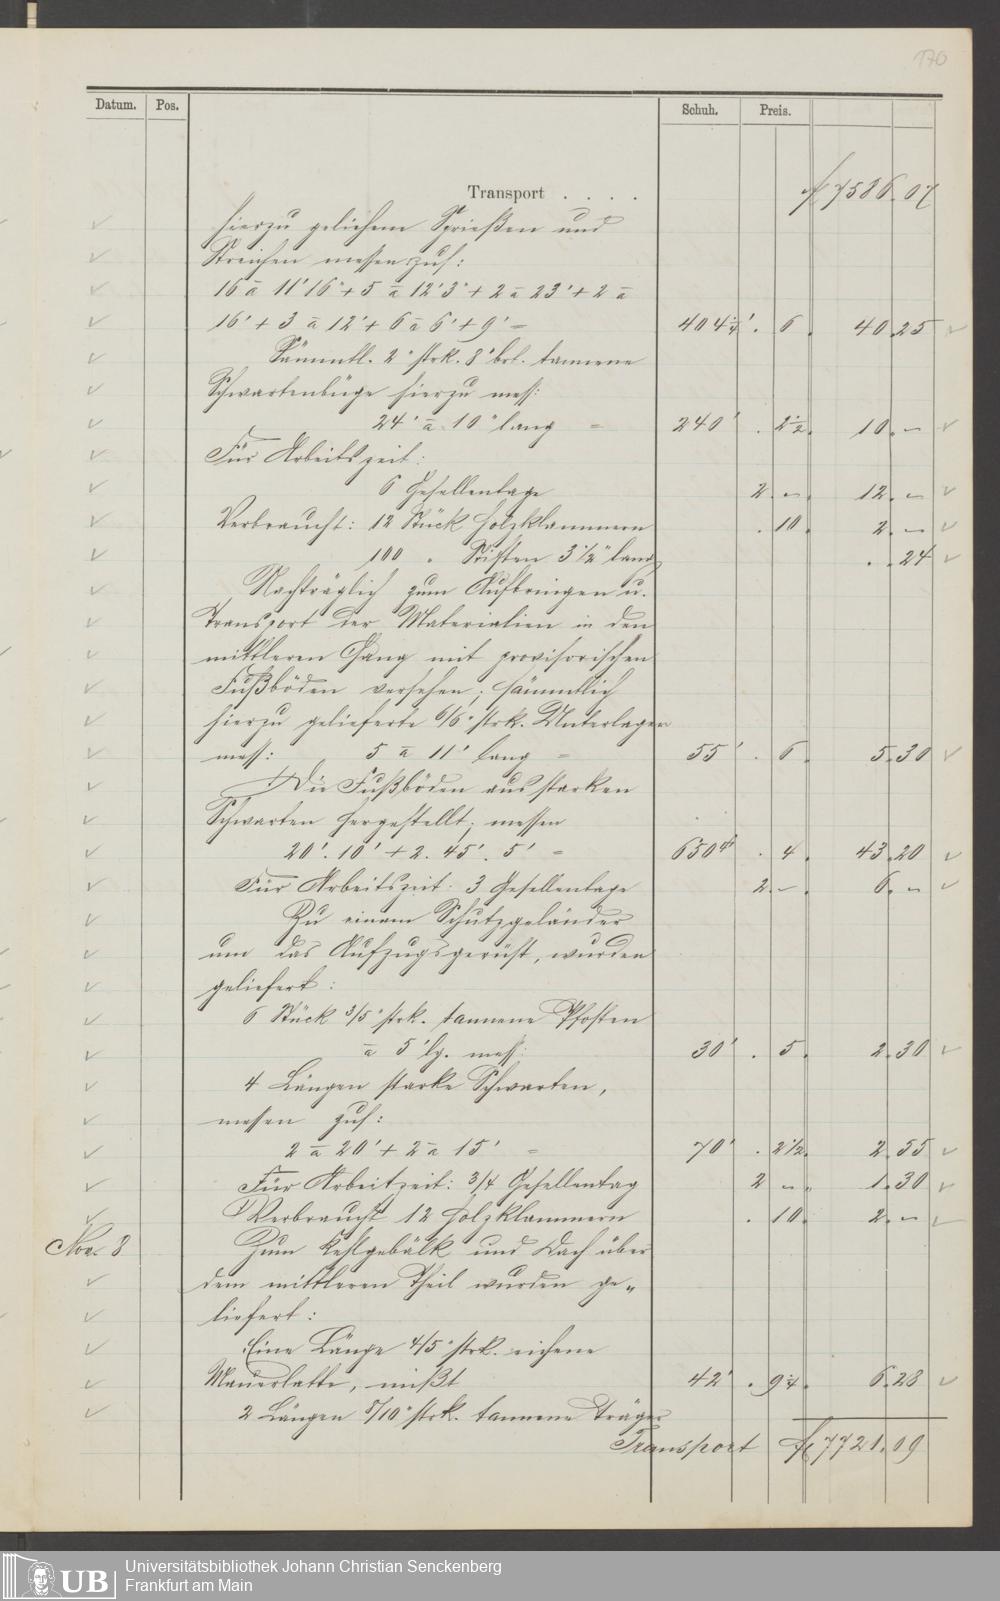 170
Datum. Pos. Schuh. Preis.
Transport . . . . f 7586.07
hierzu geliehene Sprießen und
Streichen messen zus:
16 à 11' 16" + 5 à 12' 3" + 2 à 23' + 2 à
16' + 3 à 12' + 6 à 6' + 9' = 404 1/4' . 6 . 40.25
Sämmtl. 2" strk. 8" brt. tannene
Schwartenbüge hierzu mess:
24' à 10" lang = 240' . 2 1/2 . 10.–
Für Arbeitszeit:
6 Gesellentage 2.–. 12.–
Verbraucht: 12 Stück Holzklammern . 10 . 2.–
100 " Stiften 3 1/2" lang . . 24
Nachträglich zum Aufbringen u.
Transport der Materialien in den
mittleren Gang mit provisorischen
Fußböden versehen; sämmtlich
hierzu gelieferte 6/6" strk. Unterlagen
mess: 5 à 11' lang = 55' . 6 . 5.30
Die Fußböden aus starken
Schwarten hergestellt; messen
20'. 10' + 2. 45'. 5' = 650 . 4 . 43.20
Für Arbeitszeit: 3 Gesellentage 2.–. 6.–
Zu einem Schutzgeländer
um das Aufzugsgerüst, wurden
geliefert:
6 Stück 3/5" strk. tannene Pfosten
à 5' lg. mess: 30' . 5 . 2.30
4 Längen starke Schwarten,
messen zus:
2 à 20' + 2 à 15' = 70' . 2 1/2 . 2.55
Für Arbeitzeit: 3/4 Gesellentag 2 –. 1.30
Verbraucht 12 Holzklammern . 10. 2.–
Nov. 8 Zum Kehlgebälk und Dach über
dem mittleren Theil wurden ge„
liefert:
Eine Länge 4/5" strk. eichene
Mauerlatte, mißt 42' . 9 1/4 . 6.28
2 Längen 8/10" strk. tannene Träger
Transport f 7721.09
UB
Universitätsbibliothek Johann Christian Senckenberg
Frankfurt am Main